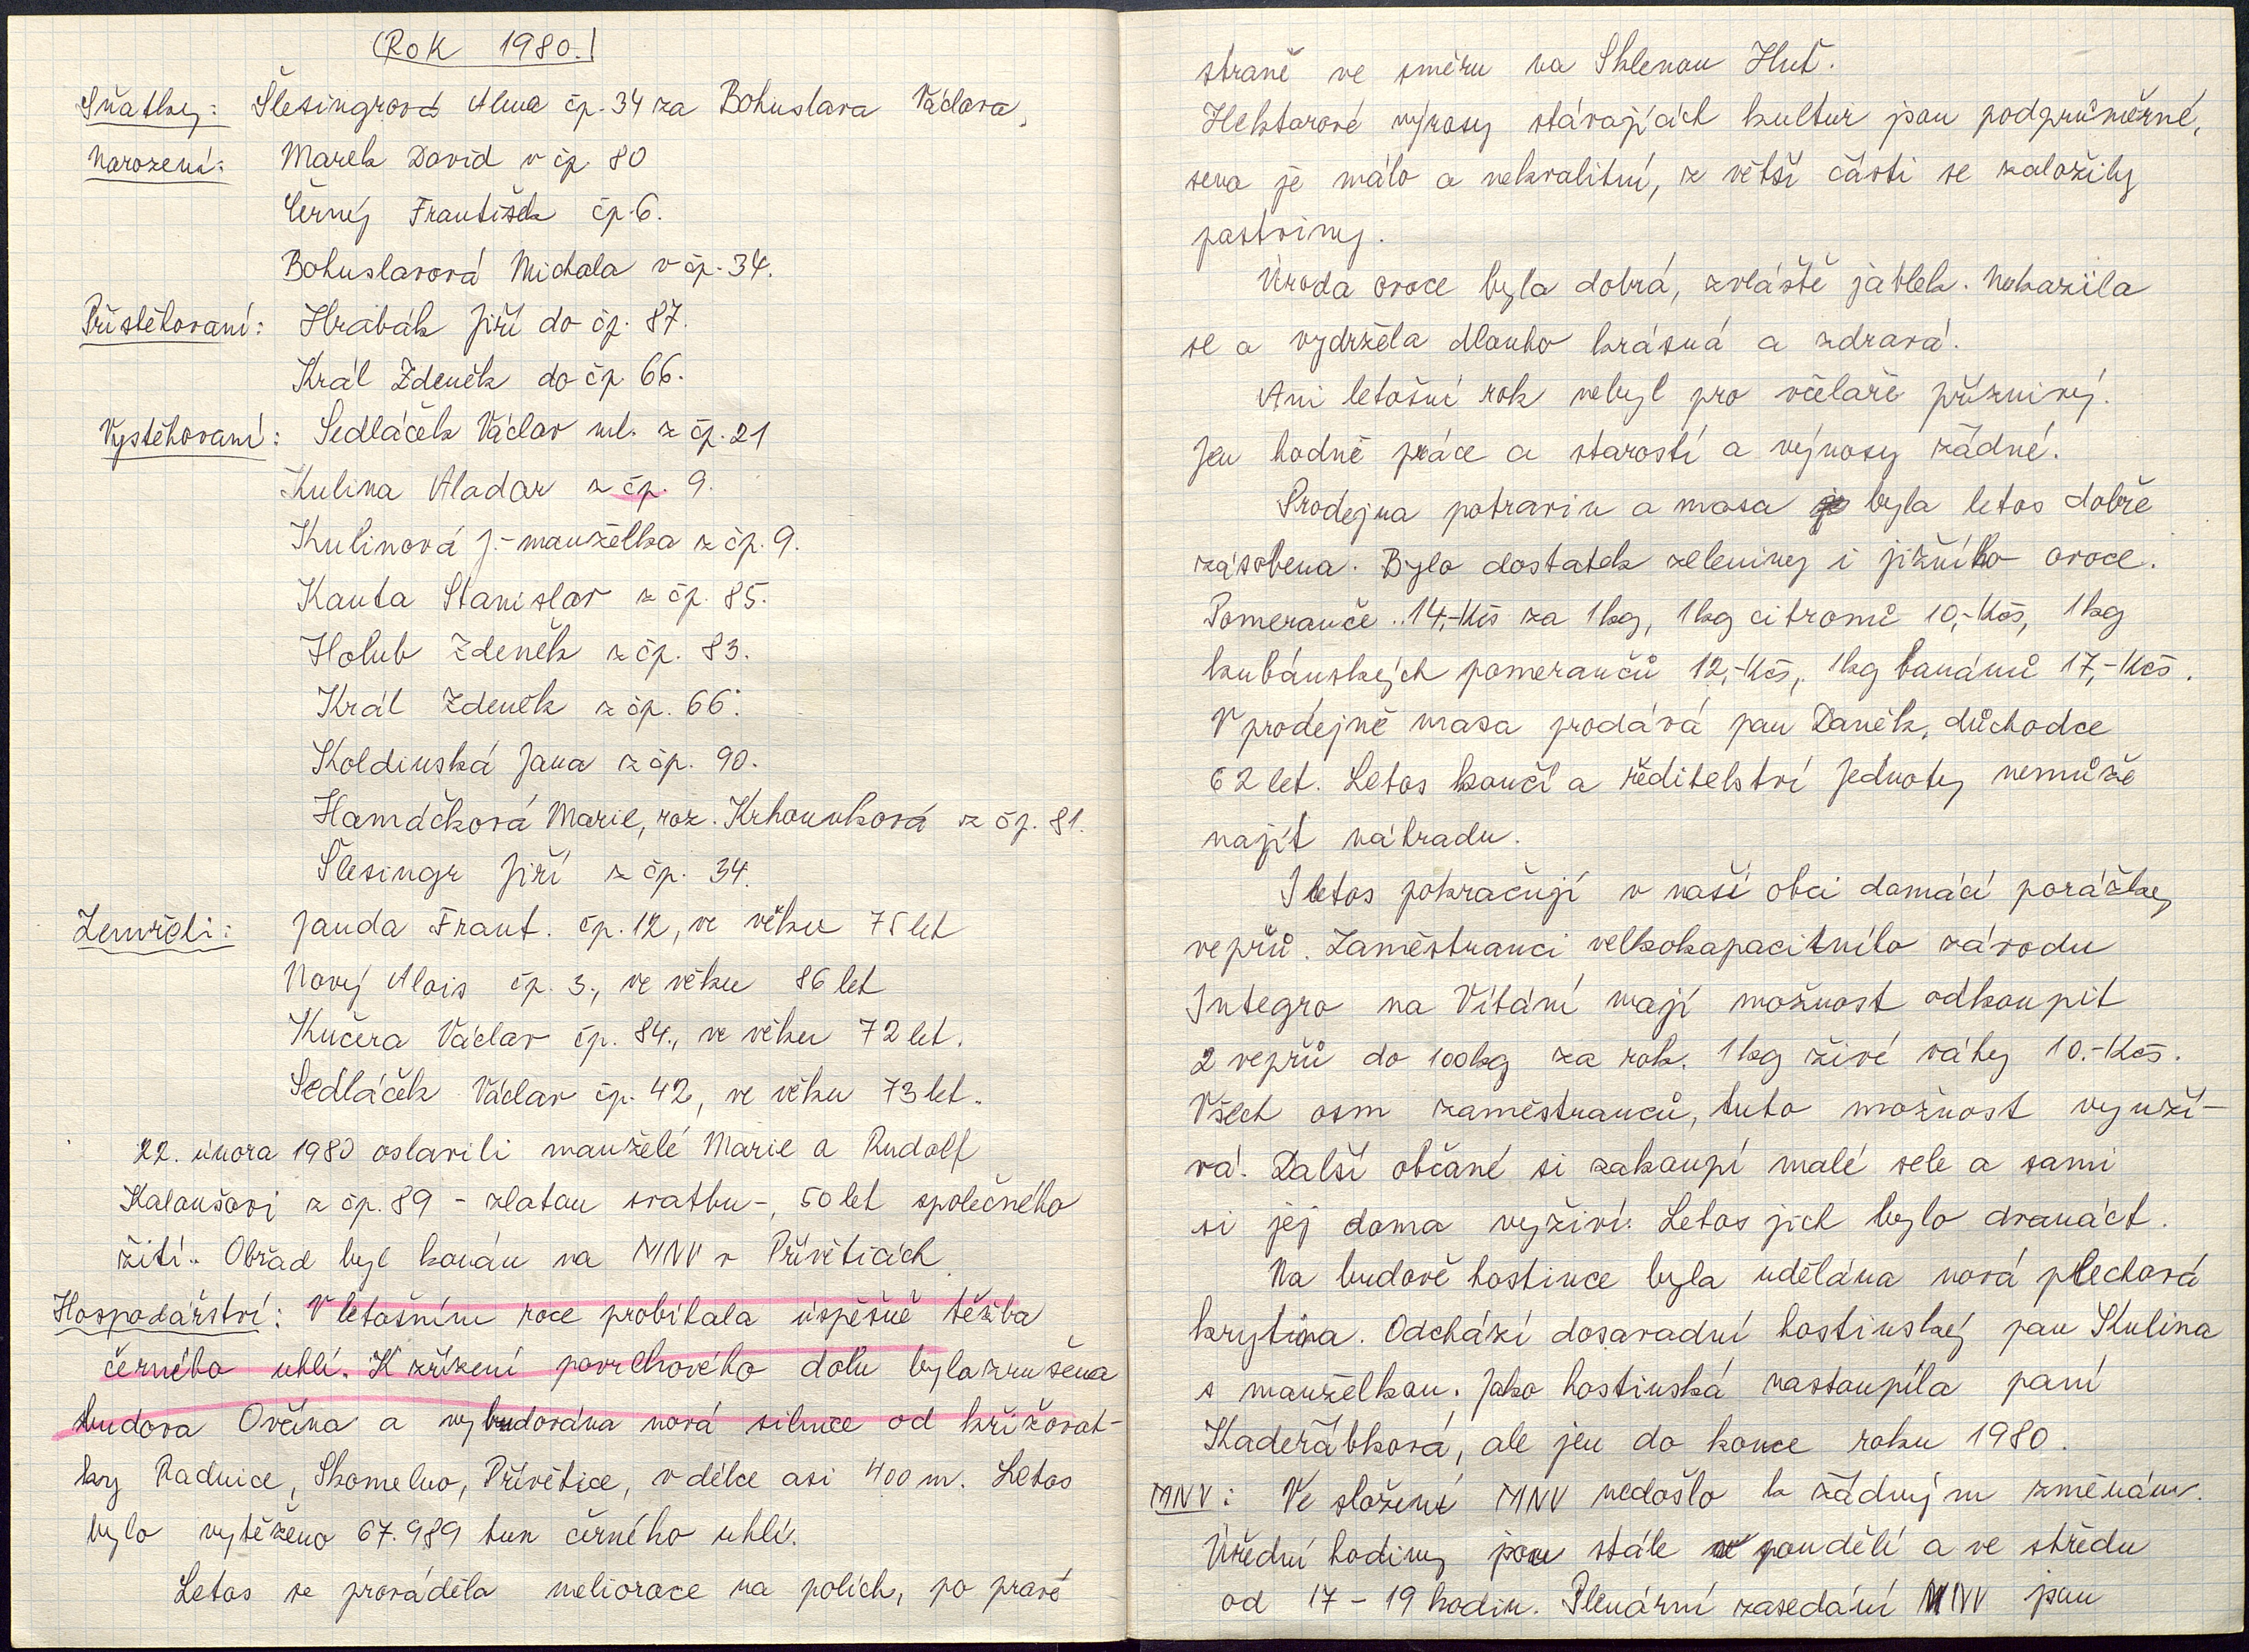 (Rok 1980.)
Sňatky: Šlesingrová Alena čp. 34 za Bohuslava Václava,
Narození: Marek David v čp. 80
Černý František čp. 6.
Bohuslavová Michala v čp. 34.
Přistěhovaní: Hrabák Jiří do čp. 87.
Král Zdeněk do čp. 66.
Vystěhovaní: Sedláček Václav ml. z čp. 21
Kulina Aladar z čp. 9.
Kulinová J. - manželka z čp. 9.
Kanta Stanislav z čp. 85.
Holub Zdeněk z čp. 83.
Král Zdeněk z čp. 66.
Koldinská Jana z čp. 90.
Hamáčková Marie, roz. Krhounková z čp. 81.
Šlesingr Jiří z čp. 34.
Zemřeli: Janda Frant. čp. 12, ve věku 75 let
Nový Alois čp. 3., ve věku 86 let
Kučera Václav čp. 84., ve věku 72 let.
Sedláček Václav čp. 42, ve věku 73 let.
22. února 1980 oslavili manželé Marie a Rudolf
Kaloušovi z čp. 89 - zlatou svatbu -, 50 let společného
žití. Obřad byl konán na MNV v Přívěticích
Hospodářství: V letošním roce probíhala úspěšně těžba
černého uhlí. K zřízení povrchového dolu byla zrušena
budova Ovčína a vybudována nová silnice od křižovat-
ky Radnice, Skomelno, Přívětice, v délce asi 400 m. Letos
bylo vytěženo 67.989 tun černého uhlí.
Letos se prováděla meliorace na polích, po pravé
straně ve směru na Sklenou Huť.
Hektarové výnosy stávajících kultur jsou podprůměrné,
sena je málo a nekvalitní, z větší části se založily
pastviny.
Úroda ovoce byla dobrá, zvláště jablek. Nekazila
se a vydržela dlouho krásná a zdravá.
Ani letošní rok nebyl pro včelaře příznivý.
Jen hodně práce a starostí a výnosy žádné.
Prodejna potravin a masa byla letos dobře
zásobena. Bylo dostatek zeleniny i jižního ovoce.
Pomeranče .. 14,-Kčs za 1 kg, 1 kg citronů 10,-Kčs, 1 kg
kubánských pomerančů 12,-Kčs, 1 kg banánů 17,-Kčs.
V prodejně masa prodává pan Daněk, důchodce
62 let. Letos končí a ředitelství Jednoty nemůže
najít náhradu.
I letos pokračují v naší obci domácí porážky
vepřů. Zaměstnanci velkokapacitního závodu
Integro na Vítání mají možnost odkoupit
2 vepřů do 100kg za rok. 1 kg živé váhy 10.-Kčs.
Všech osm zaměstnanců, tuto možnost využí-
vá. Další občané si zakoupí malé sele a sami
si jej doma vyživí. Letos jich bylo dvanáct.
Na budově hostince byla udělána nová plechová
krytina. Odchází dosavadní hostinský pan Kulina
s manželkou. Jako hostinská nastoupila paní
Kadeřábková, ale jen do konce roku 1980.
MNV: Ve složení MNV nedošlo k žádným změnám.
Úřední hodiny jsou stále v pondělí a ve středu
od 17 - 19 hodin. Plenární zasedání MNV jsou